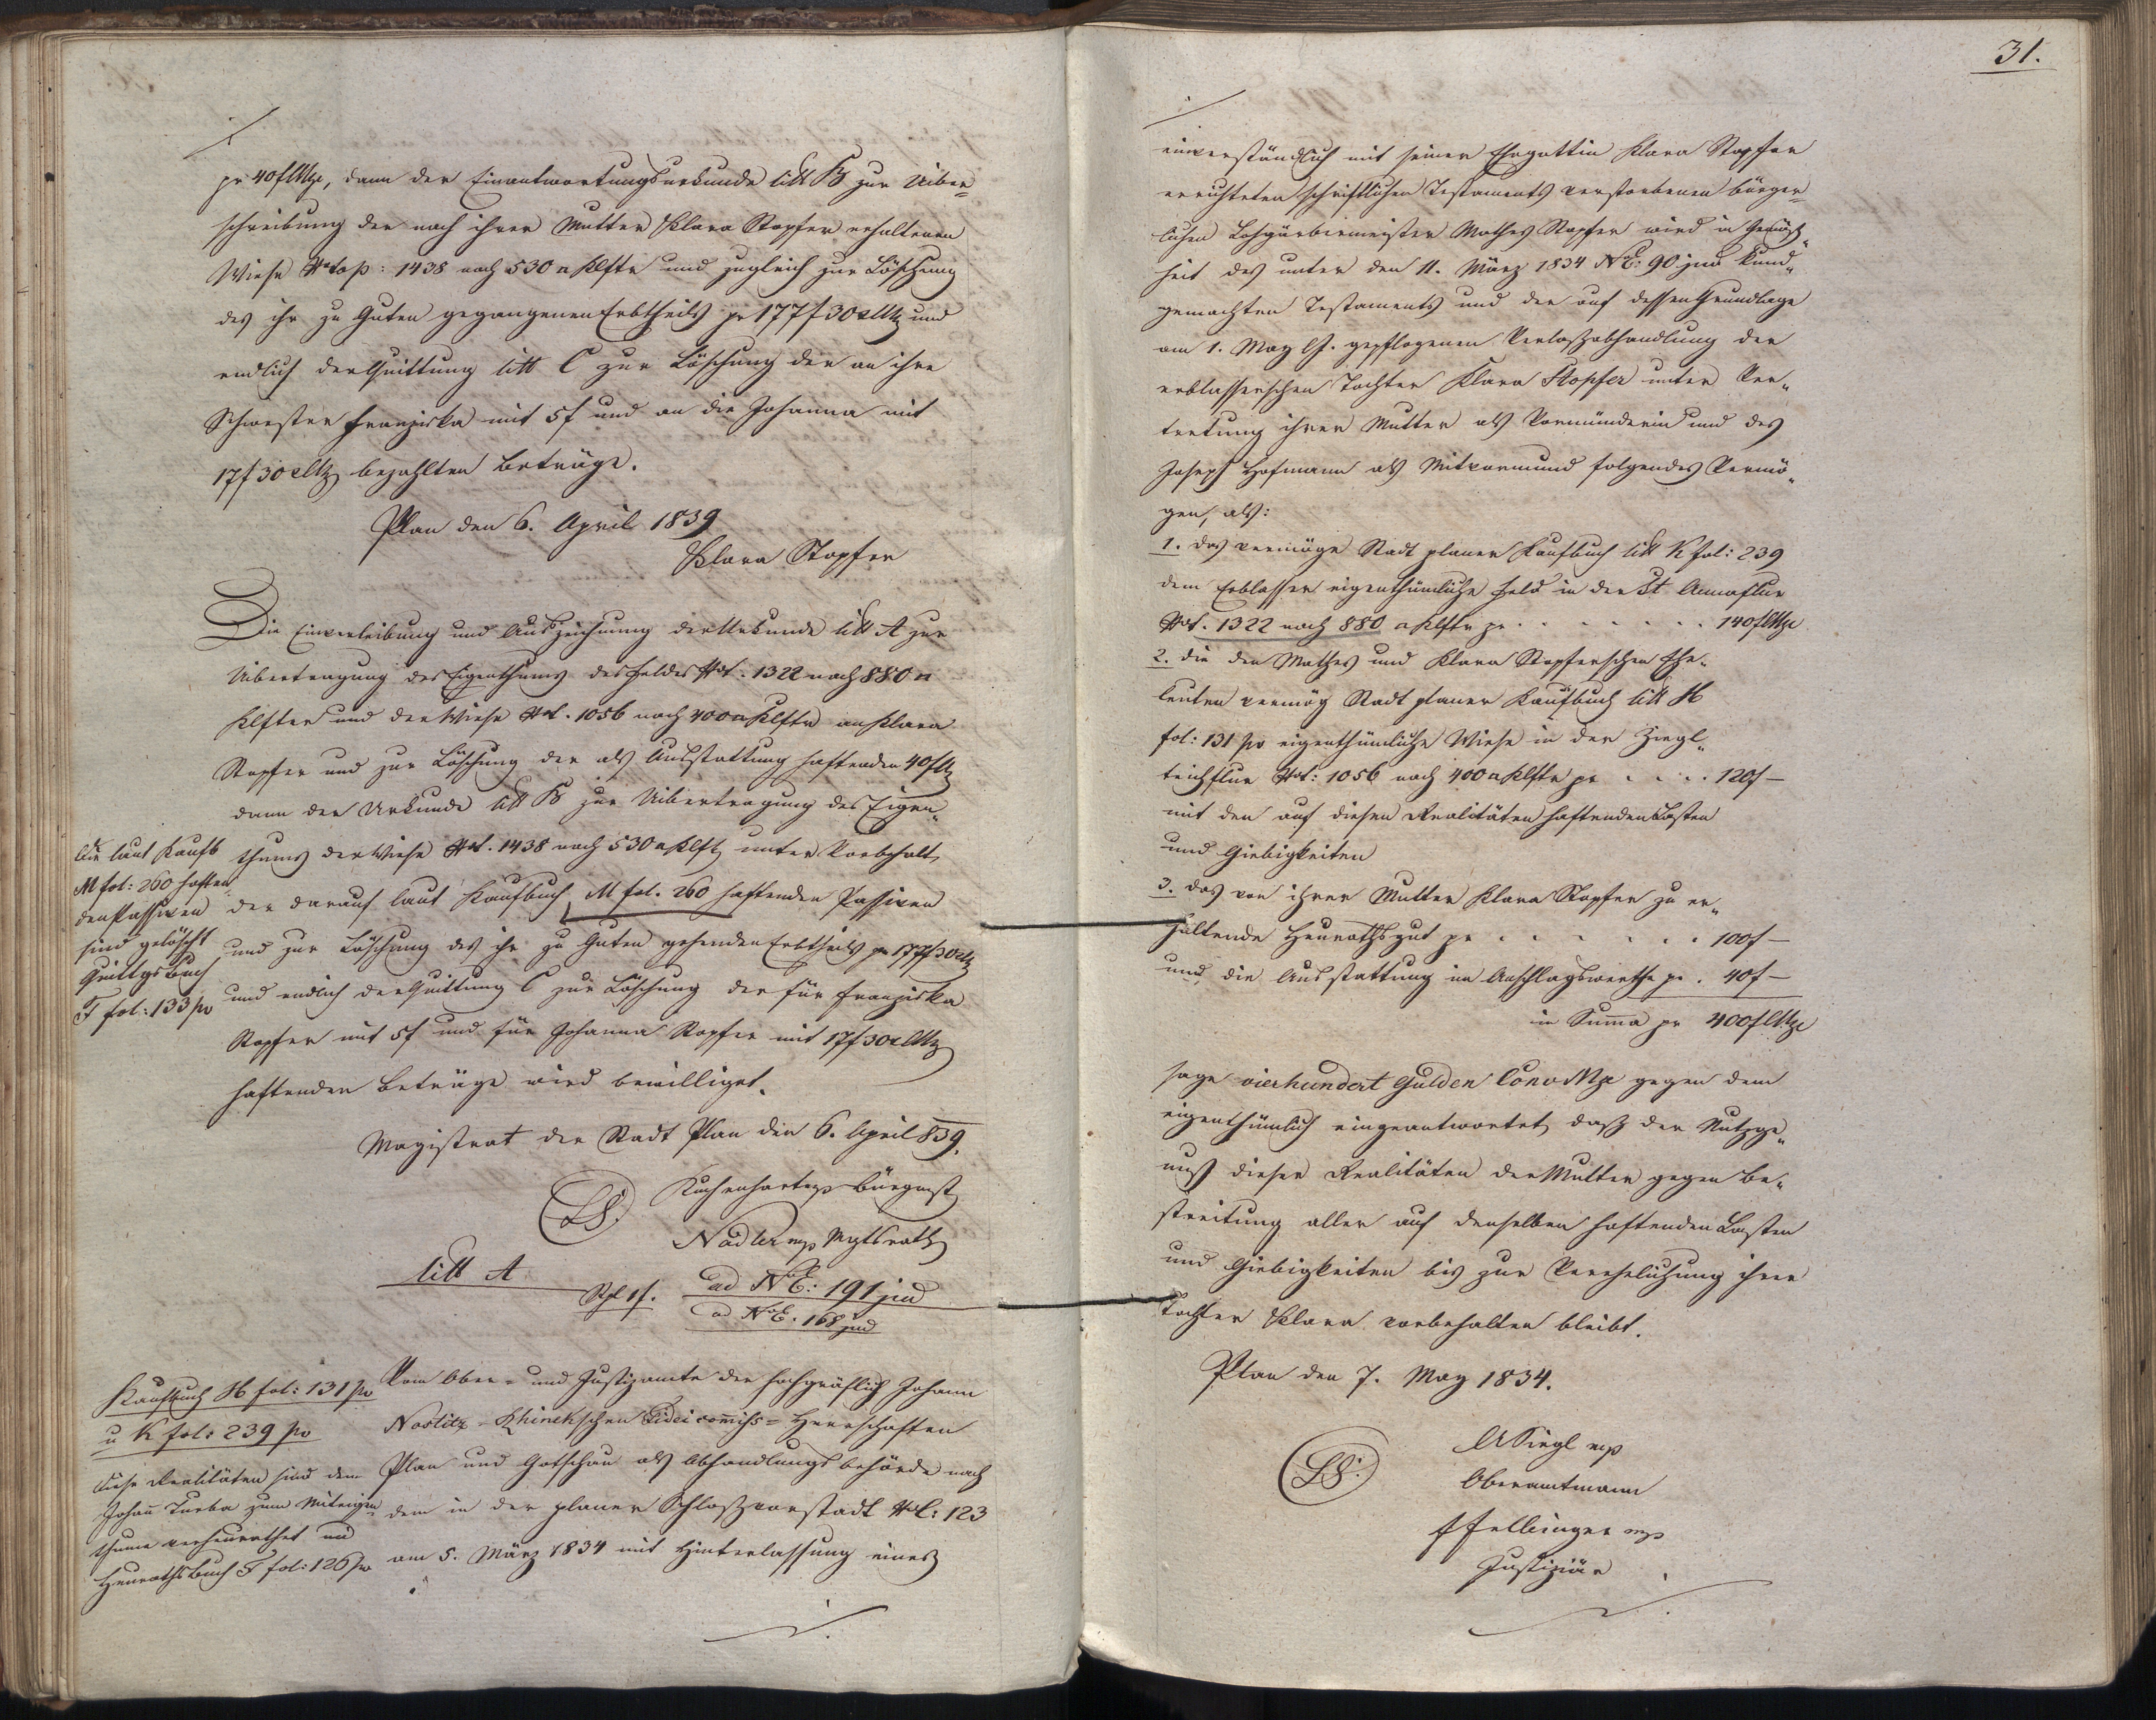 pr 40 f CMze, dann der Einantwortungsurkunde litt B zur Uiber=
schreibung der nach ihrer Mutter Klara Stopfer erhaltenen
Wiese N top: 1438 nach 530 □ Klftr und zugleich zur Löschung
des ihr zu Guten gegangenen Erbtheils pr 177 f 30 x CMz und
endlich der Quittung litt C zur Löschung der an ihre
Schwester Franziska mit 5 f und an die Johanna mit
17 f 30 x CMz bezahlten Beträge.
Plan den 6. April 1839
Klara Stopfer
Die Einverleibung und Auszeichnung der Urkunde litt A zur
Übertragung des Eigenthums des Feldes N t. 1322 nach 880 □
Klfter und der Wiese N t. 1056 nach 400 □ Klftr an Klara
Stopfer und zur Löschung der als Ausstattung haftenden 40 f Mz
dann der Urkunde litt B zur Uibertragung des Eigen„
thums der Wiese N t. 1438 nach 530 □ Klft, unter Vorbehalt,
der darauf laut Kaufbuch M fol. 260 haftenden Passiven
und zur Löschung des ihr zu Guten gehenden Erbtheils pr 177 f 30 x Mz
und endlich der Quittung C zur Löschung der für Franziska
Stopfer mit 5 f und für Johanna Stopfer mit 17 f 30 x CMz
haftenden Beträge wird bewilliget.
Die laut Kaufb
M fol: 260 haften„
den Passiven
sind gelöscht
Quittgsbuch
F fol: 133 po
Magistrat der Stadt Plan den 6. April 839.
LS. Kuchenhart mp Bürgmst
Nadler mp Mgtsrath
litt A
Stpl 1 f. ad NE: 191 jud
ad NE. 168 jud
Kaufbuch H fol: 131 po
u K fol: 239 po
Diese Realitäten sind dem
Johañ Turba zum Miteigen„
thume verheurathet im
Heurathsbuch F fol: 126 po
Vom Ober- und Justizamte der hochgräflich Johann
Nostitz-Rhinekschen Fideicom̃iß= Herrschaften
Plan und Gotschau als Abhandlungsbehörde nach
dem in der planer Schloßvorstadt N C: 123
am 5. März 1834 mit Hinterlassung eines
31.
einverständlich mit seiner Ehegattin Klara Stopfer
errichteten schriftlichen Testaments verstorbenen bürger=
lichen Lohgärbermeister Mathes Stopfer wird in Gemäß„
heit des unter den 11. März 1834 NE: 90 jud kund„
gemachten Testaments und der auf dessen Grundlage
am 1. May l.J. gepflogenen Verlaßabhandlung der
erblasserschen Tochter Klara Stopfer unter Ver„
tretung ihrer Mutter als Vormünderin und des
Joseph Hofmann als Mitvormund folgendes Vermö„
gen, als:
1. das vermöge Stadt planer Kaufbuch litt K fol: 239
dem Erblasser eigenthümliche Feld in der St Annaflur
N t. 1322 nach 880 □ Klftr pr . . . . . . . 140 f CMze
2. die den Mathes und Klara Stopferschen Ehe„
leuten vermög Stadt planer Kaufbuch litt H
fol: 131 po eigenthümliche Wiese in der Ziegl„
teichflur N t: 1056 nach 400 □ Klftr pr . . . . 120 f —
mit den auf diesen Realitäten haftenden Lasten
und Giebigkeiten
3. das von ihrer Mutter Klara Stopfer zu er„
haltende Heurathsgut pr . . . . . . . 100 f —
und die Ausstattung im Anschlagswerthe pr . 40 f —
in Sum̃a pr 400 f CMze
sage vierhundert Gulden ConvMze gegen dem
eigenthümlich eingeantwortet, daß der Nutzge„
nuß dieser Realitäten der Mutter gegen Be„
streitung aller auf denselben haftenden Lasten
und Giebigkeiten bis zur Verehelichung ihrer
Tochter Klara vorbehalten bleibt.
Plan den 7. May 1834.
LS. Siegl mp
Oberamtmann
Fellinger mp
Justiziär